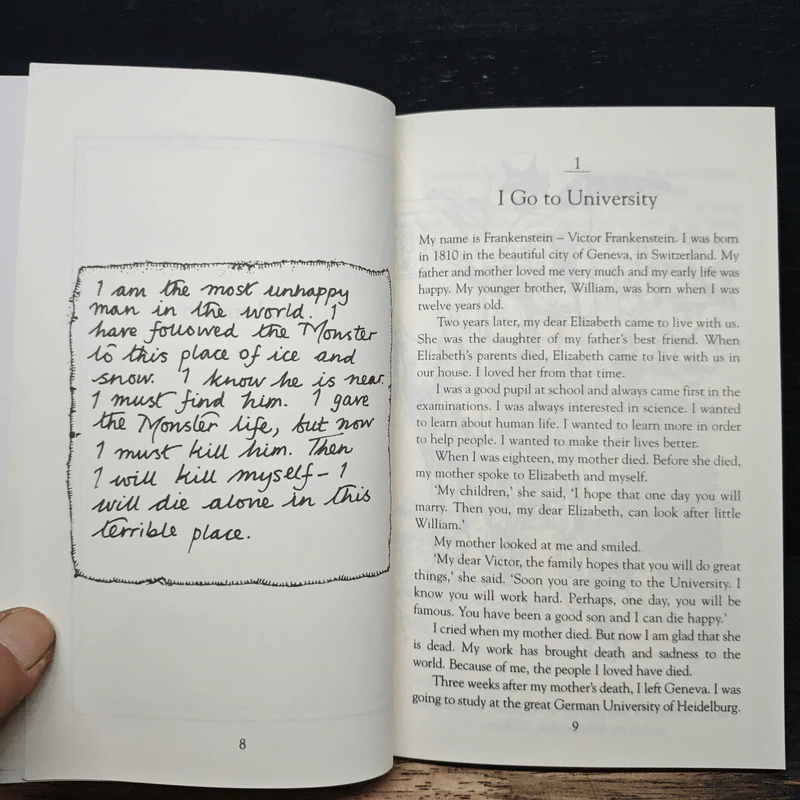 I am the most unhappy
man in the world. I
have followed the Monster
to this place of ice and
snow. I know he is near.
I must find him. I gave
the Monster life, but now
I must kill him. Then
I will kill myself – I
will die alone in this
terrible place.
8
1
I Go to University
My name is Frankenstein – Victor Frankenstein. I was born
in 1810 in the beautiful city of Geneva, in Switzerland. My
father and mother loved me very much and my early life was
happy. My younger brother, William, was born when I was
twelve years old.
Two years later, my dear Elizabeth came to live with us.
She was the daughter of my father's best friend. When
Elizabeth's parents died, Elizabeth came to live with us in
our house. I loved her from that time.
I was a good pupil at school and always came first in the
examinations. I was always interested in science. I wanted
to learn about human life. I wanted to learn more in order
to help people. I wanted to make their lives better.
When I was eighteen, my mother died. Before she died,
my mother spoke to Elizabeth and myself.
'My children,' she said, 'I hope that one day you will
marry. Then you, my dear Elizabeth, can look after little
William.'
My mother looked at me and smiled.
'My dear Victor, the family hopes that you will do great
things,' she said. 'Soon you are going to the University. I
know you will work hard. Perhaps, one day, you will be
famous. You have been a good son and I can die happy.'
I cried when my mother died. But now I am glad that she
is dead. My work has brought death and sadness to the
world. Because of me, the people I loved have died.
Three weeks after my mother's death, I left Geneva. I was
going to study at the great German University of Heidelburg.
9